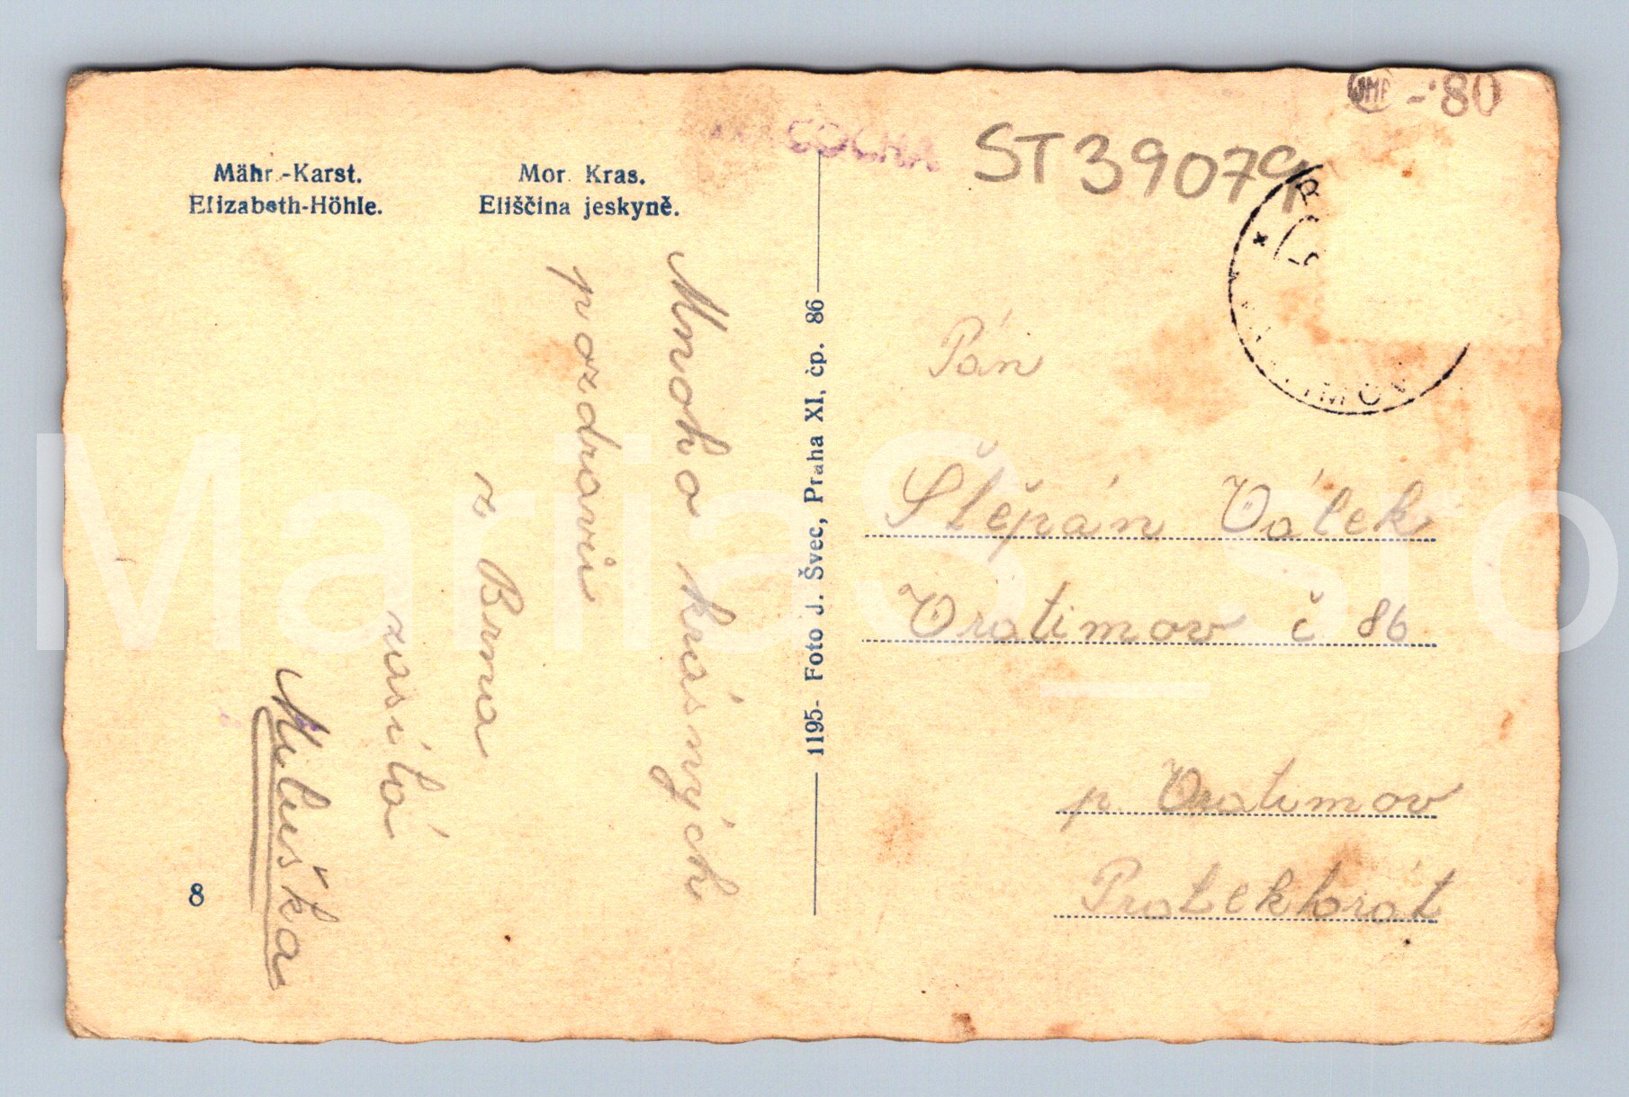 Mähr.-Karst.
Elizabeth-Höhle.
Mor. Kras.
Eliščina jeskyně.
COCHA
ST39079
-'80
Mnoho krásných
pozdravů
z Brna
zasílá
Miluška
8
1195- Foto J. Švec, Praha XI, čp. 86
Pán
Štěpán Válek
Vratimov č 86
p. Vratimov
Protektorát
MariaS_sro